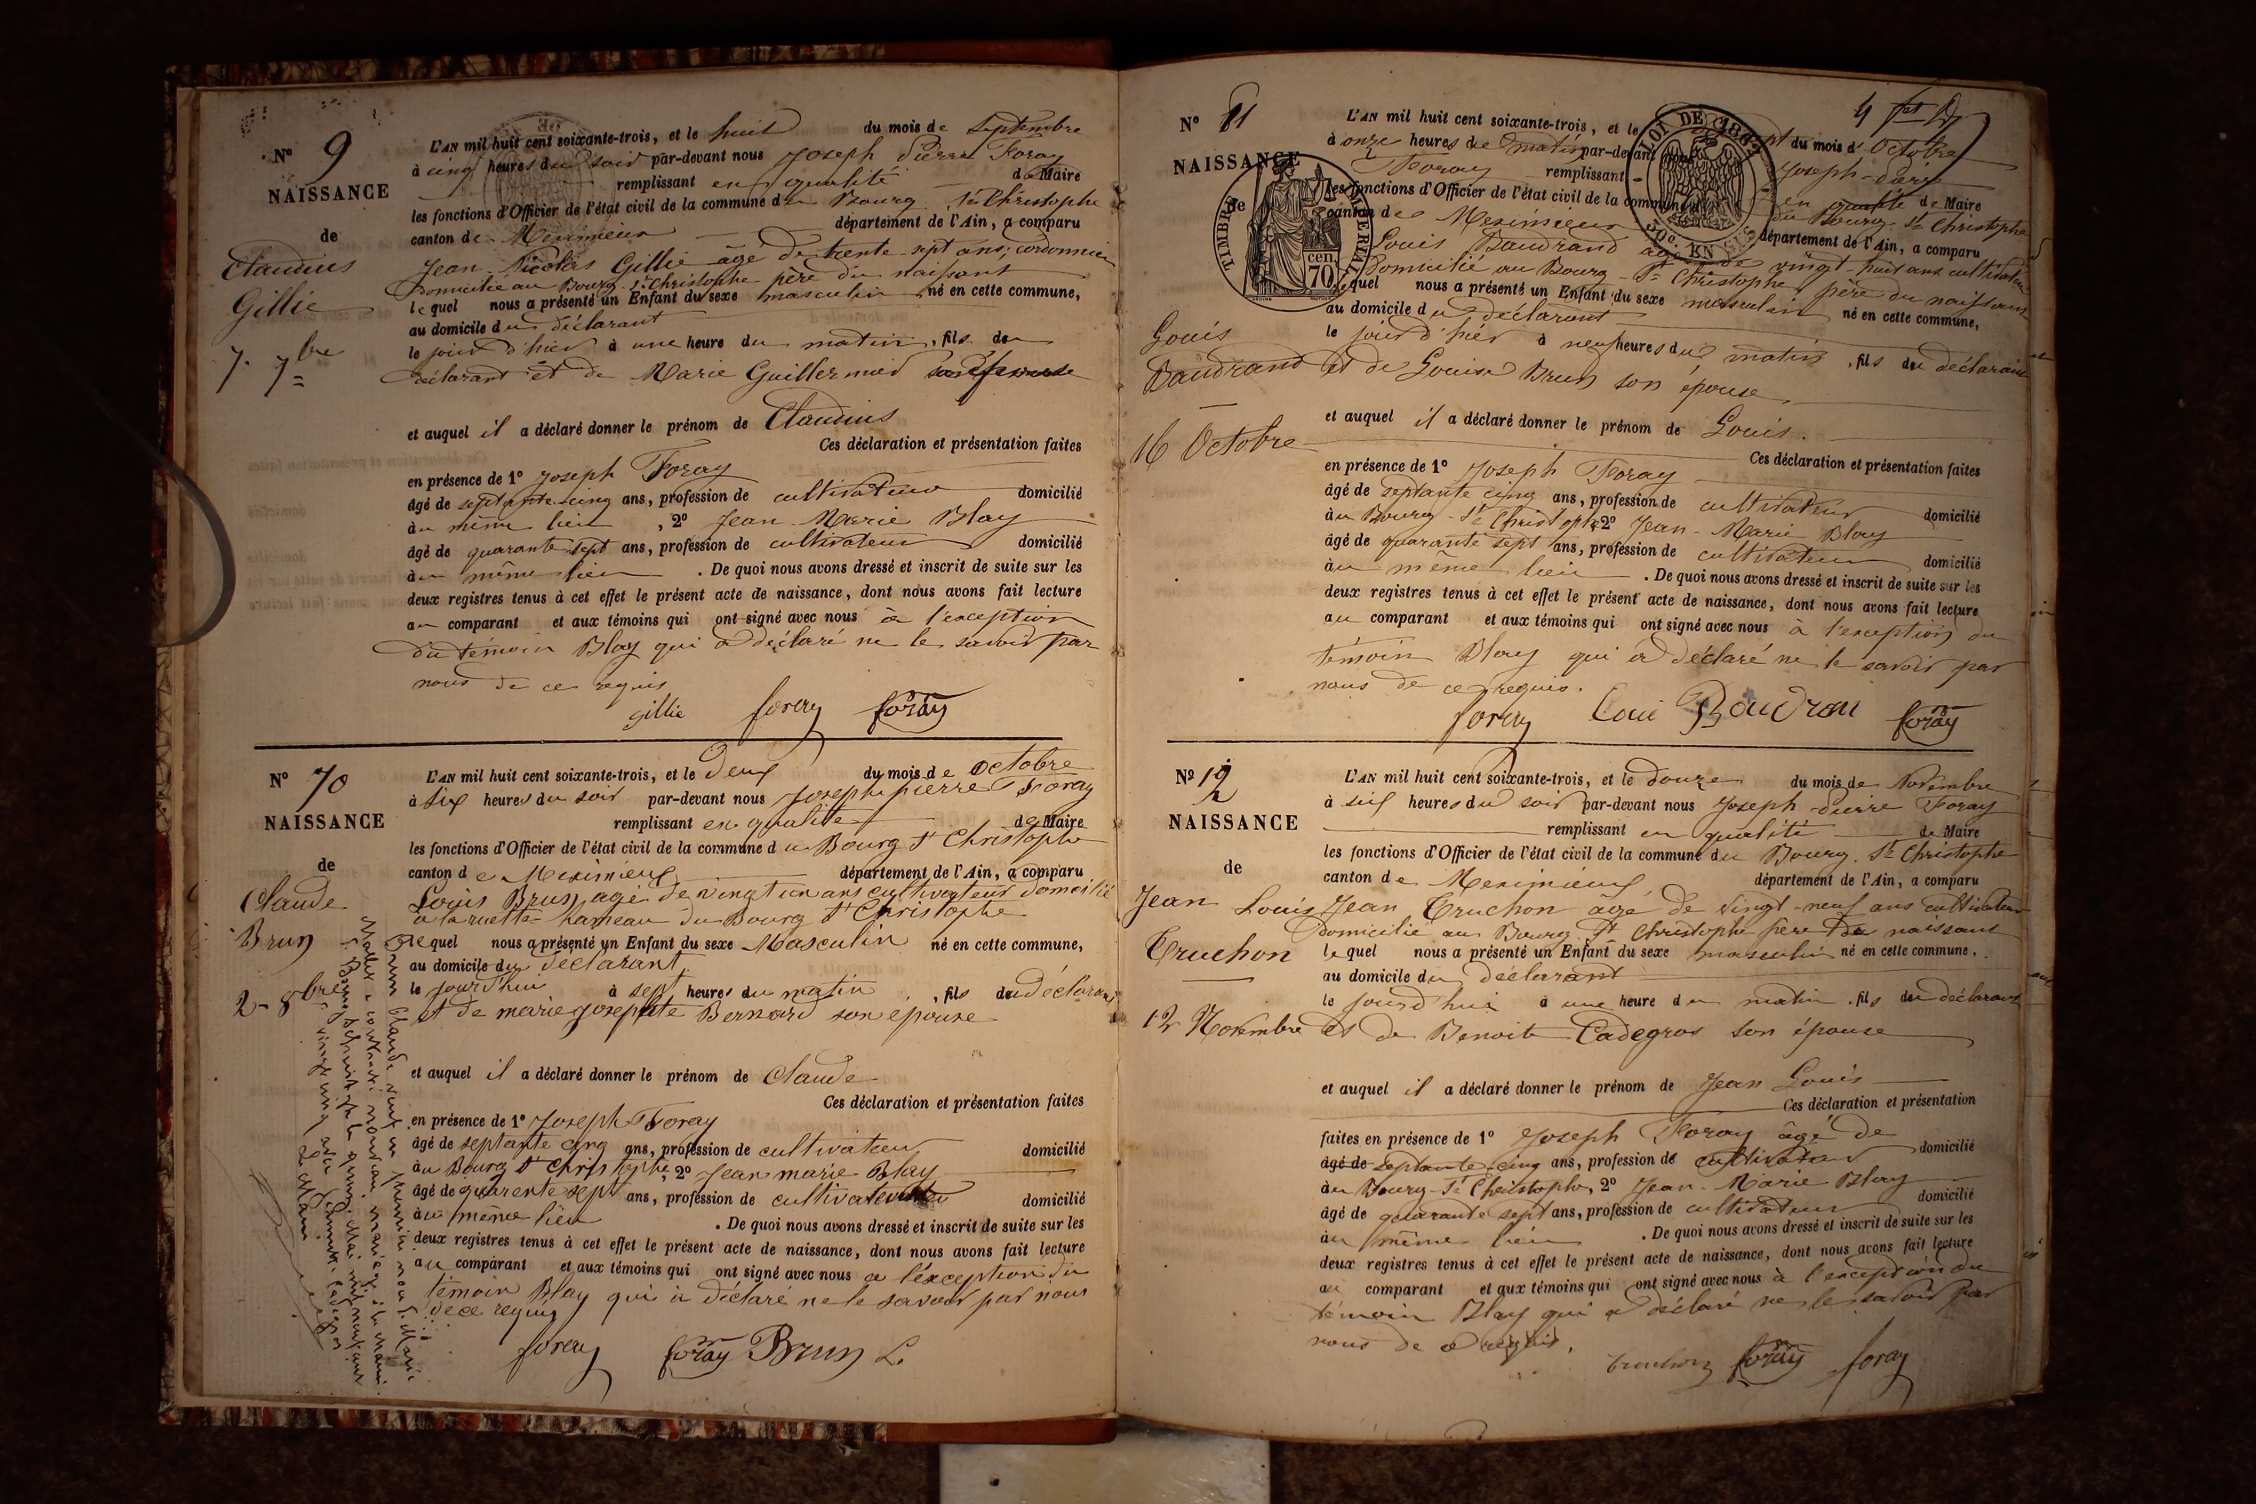 N° 9
NAISSANCE
de
Claudius
Gillie
7. 7bre
L'AN mil huit cent soixante-trois, et le huit du mois de Septembre
à cinq heures du soir par-devant nous Joseph Pierre Foray
remplissant en qualité de Maire
les fonctions d'Officier de l'état civil de la commune du Bourg St Christophe
canton de Meximieux département de l'Ain, a comparu
Jean Nicolas Gillie âgé de trente-sept ans, cordonnier
Domicilié au Bourg St Christophe père du naissant
lequel nous a présenté un Enfant du sexe masculin né en cette commune,
au domicile du déclarant
le jour d'hier à une heure du matin, fils du
déclarant et de Marie Guillermier son épouse
et auquel il a déclaré donner le prénom de Claudius
Ces déclaration et présentation faites
en présence de 1° Joseph Foray
âgé de septante-cinq ans, profession de cultivateur domicilié
au même lieu, 2° Jean-Marie Blay
âgé de quarante sept ans, profession de cultivateur domicilié
au même lieu. De quoi nous avons dressé et inscrit de suite sur les
deux registres tenus à cet effet le présent acte de naissance, dont nous avons fait lecture
au comparant et aux témoins qui ont signé avec nous à l'exception
du témoin Blay qui a déclaré ne le savoir par
nous de ce requis
gillie foray foray
N° 10
NAISSANCE
de
Claude
Brun
2 - 8bre
L'AN mil huit cent soixante-trois, et le Deux du mois de Octobre
à Six heures du soir par-devant nous Joseph pierre Foray
remplissant en qualité de Maire
les fonctions d'Officier de l'état civil de la commune du Bourg St Christophe
canton de Meximieux département de l'Ain, a comparu
Louis Brun agé de vingt un ans cultivateur domicilié
à la ruette hameau du Bourg St Christophe
lequel nous a présenté un Enfant du sexe Masculin né en cette commune,
au domicile du déclarant
le jourd'hui à sept heures du matin, fils du déclarant
et de marie josephte Bernard son épouse
et auquel il a déclaré donner le prénom de Claude
Ces déclaration et présentation faites
en présence de 1° Joseph Foray
âgé de septante cinq ans, profession de cultivateur domicilié
au Bourg St Christophe, 2° Jean marie Blay
âgé de quarente sept ans, profession de cultivateur domicilié
au même lieu. De quoi nous avons dressé et inscrit de suite sur les
deux registres tenus à cet effet le présent acte de naissance, dont nous avons fait lecture
au comparant et aux témoins qui ont signé avec nous a l'éxception du
témoin Blay qui a déclaré ne le savoir par nous
de ce requis
foray foray Brun L.
4
N° 11
NAISSANCE
de
Louis
Baudrand
16 Octobre
TIMBRE IMPERIAL
70 cen
LOI DE 1862
50c. EN SUS
L'AN mil huit cent soixante-trois, et le du mois d'Octobre
à onze heures de matin par-devant Joseph-Pierre
Foray remplissant en qualité de Maire
les fonctions d'Officier de l'état civil de la commune du Bourg St Christophe
canton de Meximieux département de l'Ain, a comparu
Louis Baudrand âgé de vingt-huit ans cultivateur
Domicilié au Bourg-St Christophe, père du naissant
lequel nous a présenté un Enfant du sexe masculin né en cette commune,
au domicile du déclarant
le jour d'hier à neuf heures du matin, fils du déclarant
et de Louise Brun son épouse
et auquel il a déclaré donner le prénom de Louis.
Ces déclaration et présentation faites
en présence de 1° Joseph Foray
âgé de septante cinq ans, profession de cultivateur domicilié
au Bourg-St Christophe 2° Jean-Marie Blay
âgé de quarante sept ans, profession de cultivateur domicilié
au même lieu. De quoi nous avons dressé et inscrit de suite sur les
deux registres tenus à cet effet le présent acte de naissance, dont nous avons fait lecture
au comparant et aux témoins qui ont signé avec nous à l'exception du
témoin Blay qui a déclaré ne le savoir par
nous de ce requis.
foray Loui Baudran foray
N° 12
NAISSANCE
de
Jean Louis
Truchon
12 Novembre
L'AN mil huit cent soixante-trois, et le douze du mois de Novembre
à six heures du soir par-devant nous Joseph-Pierre Foray
remplissant en qualité de Maire
les fonctions d'Officier de l'état civil de la commune du Bourg-St Christophe
canton de Meximieux, département de l'Ain, a comparu
Jean Truchon âgé de vingt-neuf ans cultivateur
Domicilié au Bourg St Christophe père du naissant
lequel nous a présenté un Enfant du sexe masculin né en cette commune,
au domicile du déclarant
le jourd'hui à une heure du matin, fils du déclarant
et de Benoite Cadegros son épouse
et auquel il a déclaré donner le prénom de Jean Louis
Ces déclaration et présentation
faites en présence de 1° Joseph Foray âgé de
âgé de septante-cinq ans, profession de cultivateur domicilié
au Bourg-St Christophe, 2° Jean-Marie Blay
âgé de quarante sept ans, profession de cultivateur domicilié
au même lieu. De quoi nous avons dressé et inscrit de suite sur les
deux registres tenus à cet effet le présent acte de naissance, dont nous avons fait lecture
au comparant et aux témoins qui ont signé avec nous à l'exception du
témoin Blay qui a déclaré ne le savoir par
nous de ce requis.
truchon foray foray